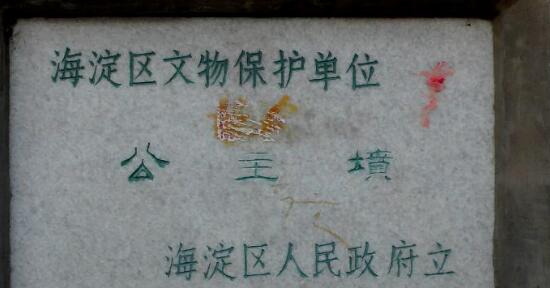 海淀区文物保护单位
公主墳
海淀区人民政府立